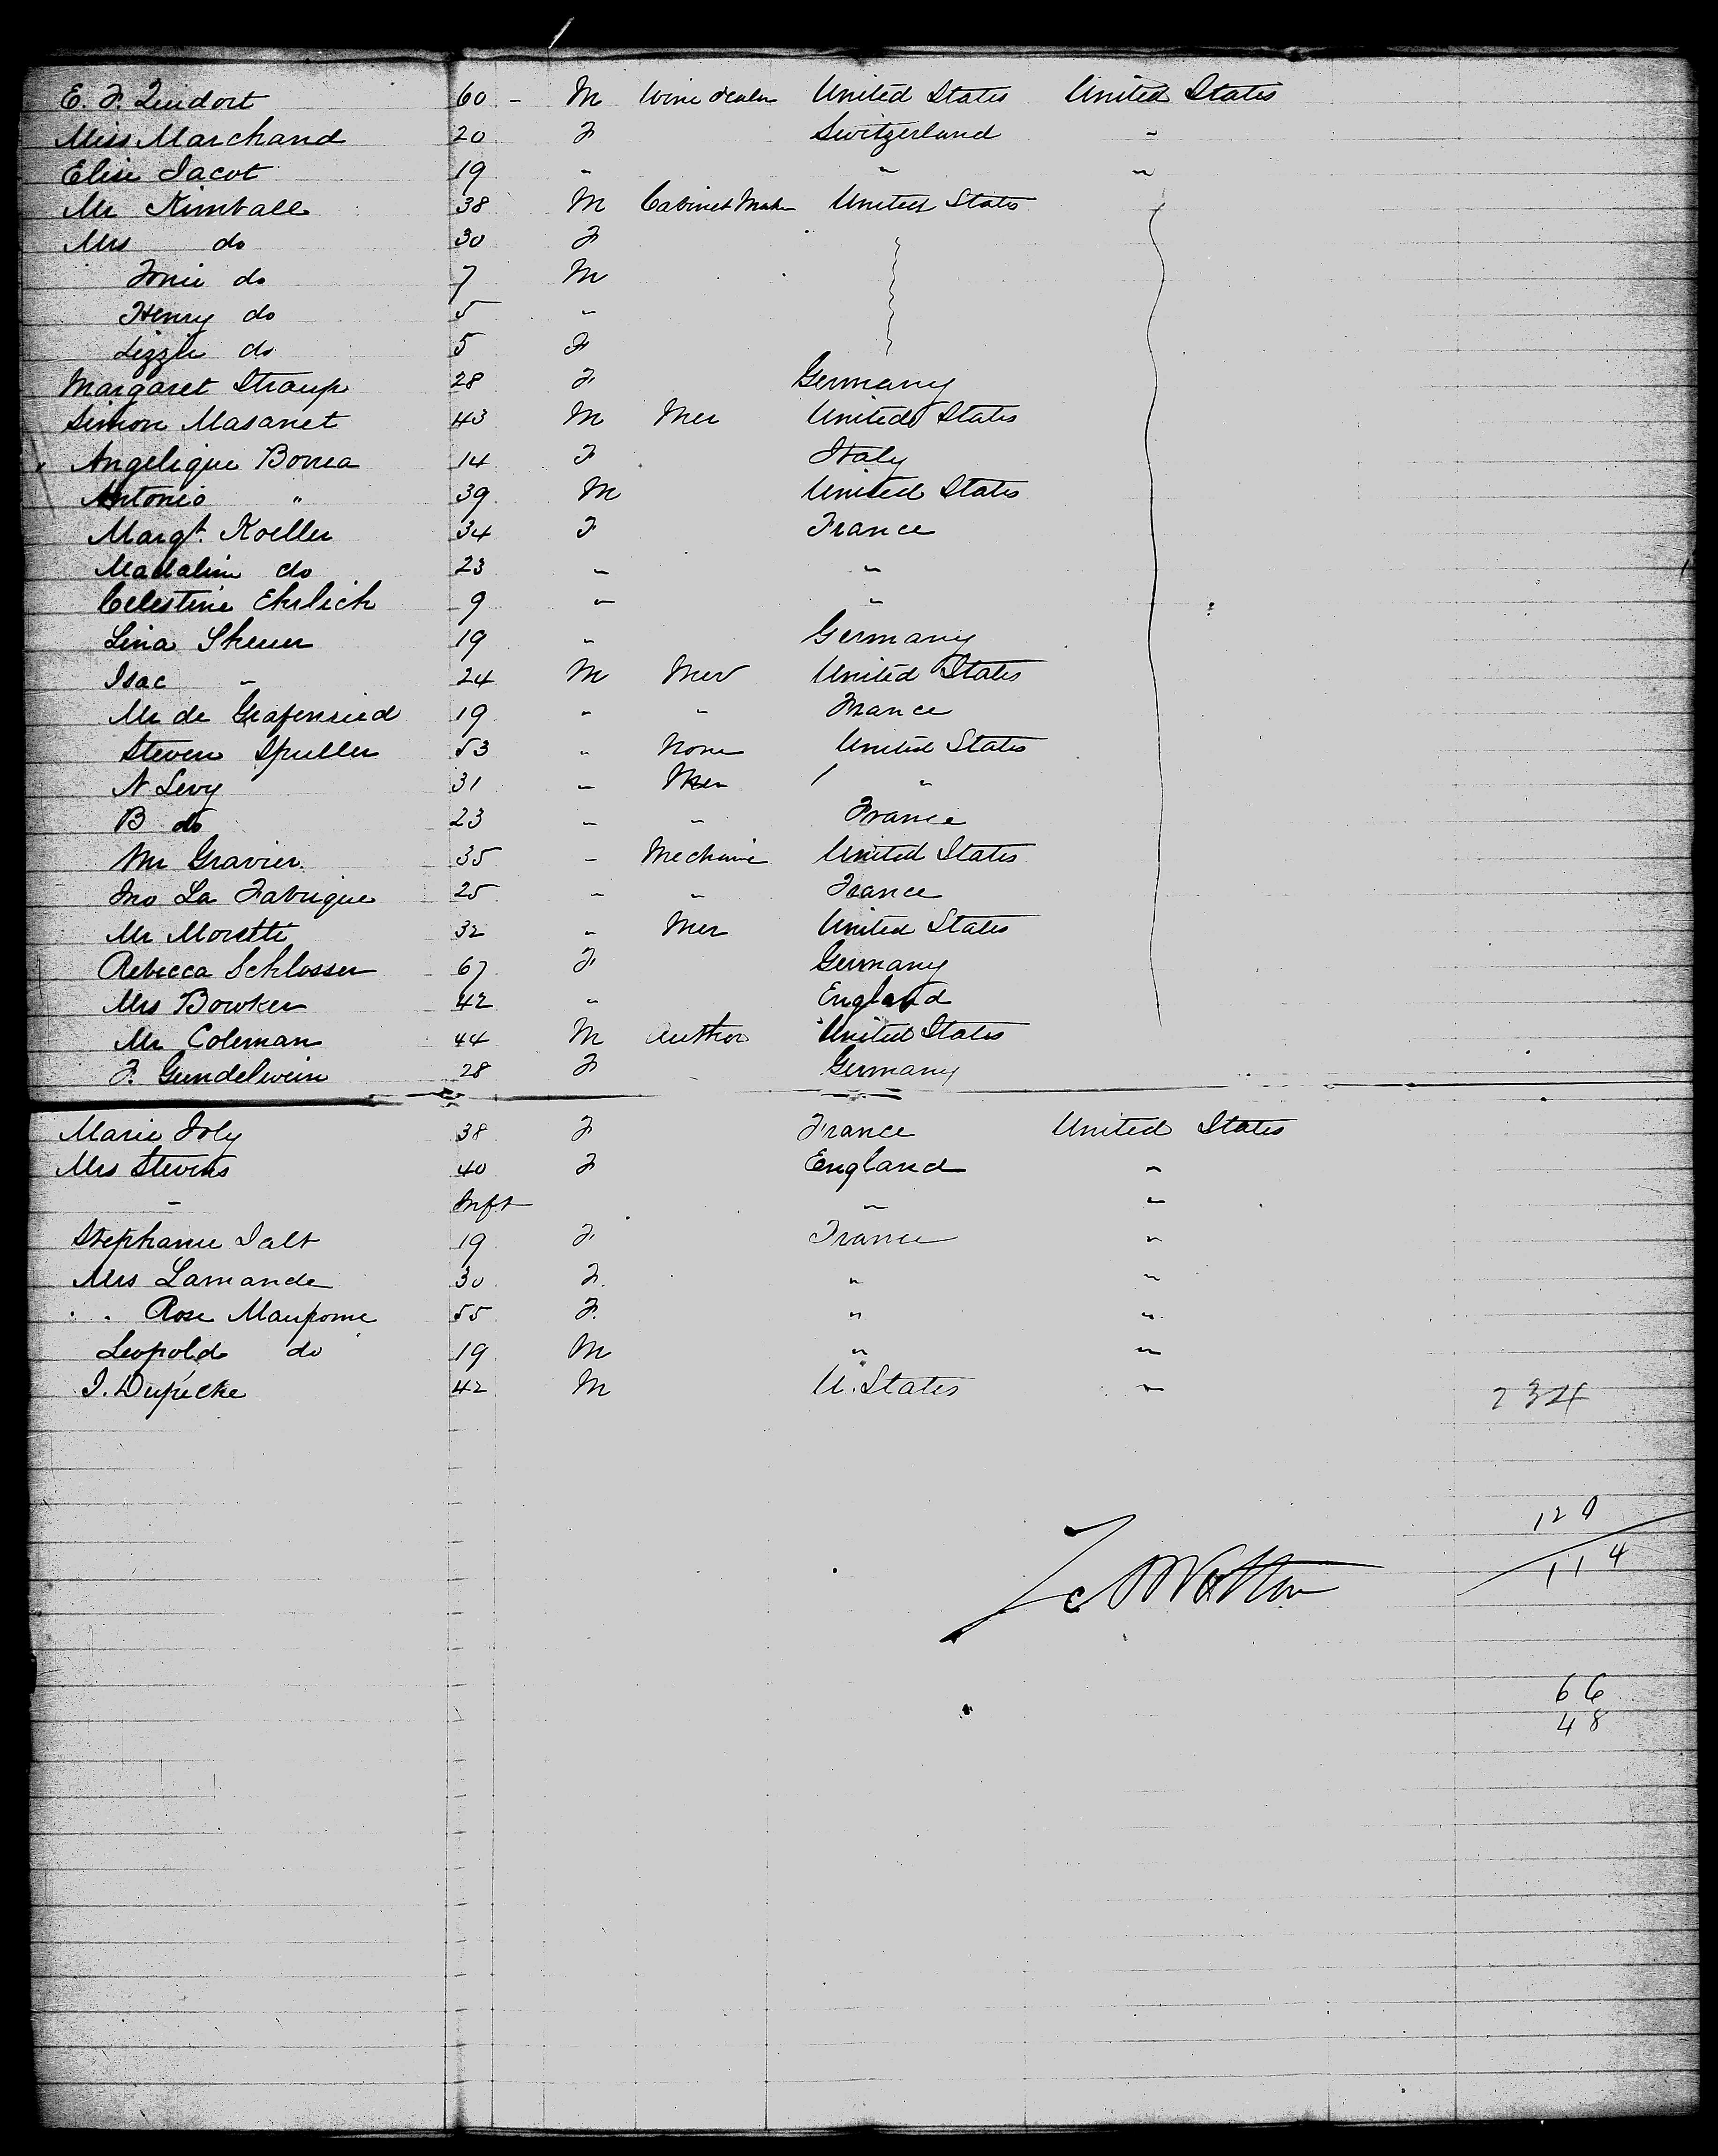 E. F. Quidort 60 - M Wine dealer United States United States
Miss Marchand 20 F Switzerland "
Elise Jacot 19 " " "
Mr Kimball 38 M Cabinet Maker United States
Mrs do 30 F
do 7 M
Henry do 5 "
Lizzie do 5 F
Margaret Straup 28 F Germany
Simon Masanet 43 M Mer United States
Angelique Borrea 14 F Italy
Antonio " 39 M United States
Margt. Koeller 34 F France
Madalin do 23 " "
Celestine Ehrlich 9 " "
Lina 19 " Germany
Isac " 24 M Mer United States
Mr de Grafenried 19 " " France
Steven Spuller 53 " None United States
N Levy 31 " Mer "
B do 23 " " France
Mr Gravier 35 " Mechanic United States
Jno La Fabrique 25 " " France
Mr Moretti 32 " Mer United States
Rebecca Schlosser 67 F Germany
Mrs Bowker 42 " England
Mr Coleman 44 M Author United States
F. Gundelwein 28 F Germany
Marie Joly 38 F France United States
Mrs Stevens 40 F England "
" Inft " "
Stephanie Jalt 19 F France "
Mrs Lamande 30 F " "
" Rose Maupome 55 F " "
Leopold do 19 M " "
J. Dupicke 42 M U. States "
234
120
114
66
48